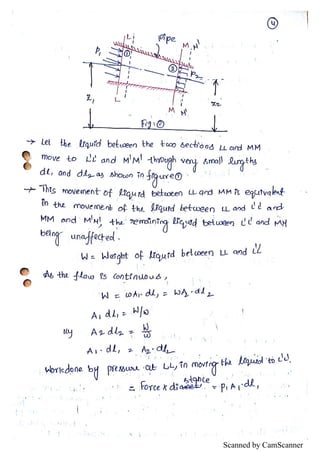 4
L L' pipe
M M'
P1 1
2 P2
Z1 Z2
L
M M'
Fig: 2
→ Let the liquid between the two sections LL and MM
move to L'L' and M'M' through very small lengths
dl1 and dl2 as shown in figure 1
→ This movement of liquid between LL and MM is equivalent
in the movement of the liquid between LL and L'L' and
MM and M'M', the remaining liquid between L'L' and MM
being unaffected.
W = Weight of liquid between LL and L'L'
As the flow is continuous,
W = wA1 · dl1 = wA2 · dl2
A1 dl1 = W/w
lly A2 dl2 = W/w
A1 · dl1 = A2 · dl2
Workdone by pressure at LL, in moving the liquid to L'L'.
= Force x distance = P1 A1 · dl1
Scanned by CamScanner